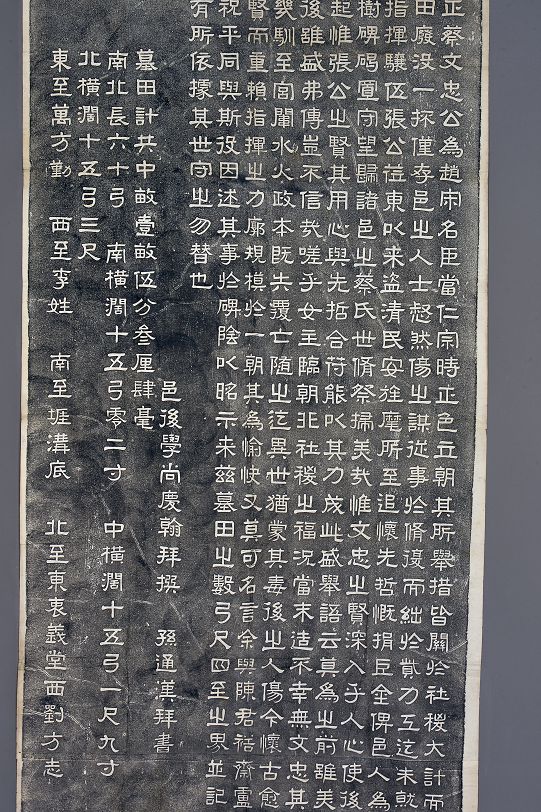 正蔡文忠公為趙宋名臣當仁宗時正色立朝其所舉措皆關於社稷大計而
田廢没一抔僅存邑之人士惄然傷之謀從事於脩復而絀於貲力迄未就
指揮驤伍張公莅東以來盜清民安旌麾所至追懷先哲慨捐巨金俾邑人為
樹碑碣置守望歸諸邑之蔡氏世脩祭掃美哉惟文忠之賢深入乎人心使後
起惟張公之賢其用心與先哲合符能以其力成此盛舉語云莫為之前雖美
後雖盛弗傳豈不信哉嗟乎女主臨朝非社稷之福況當末造不幸無文忠其
馴至宮闈水火政本既失覆亡隨之迄異世猶蒙其毒後之人傷今懷古愈
賢而重賴指揮之力廓規模於一朝其為愉快又莫可名言余與陳君齋盧
祝平同與斯役因述其事於碑陰以昭示来兹墓田之數弓尺四至之界並記
有所依據其世守之勿替也
邑後學尚慶翰拜撰 孫通漢拜書
墓田計共中畝壹畝伍分叄厘肆毫
南北長六十弓 南橫濶十五弓零二寸 中橫濶十五弓一尺九寸
北橫濶十五弓三尺
東至萬方勤 西至李姓 南至堐溝底 北至東衷義堂西劉方志